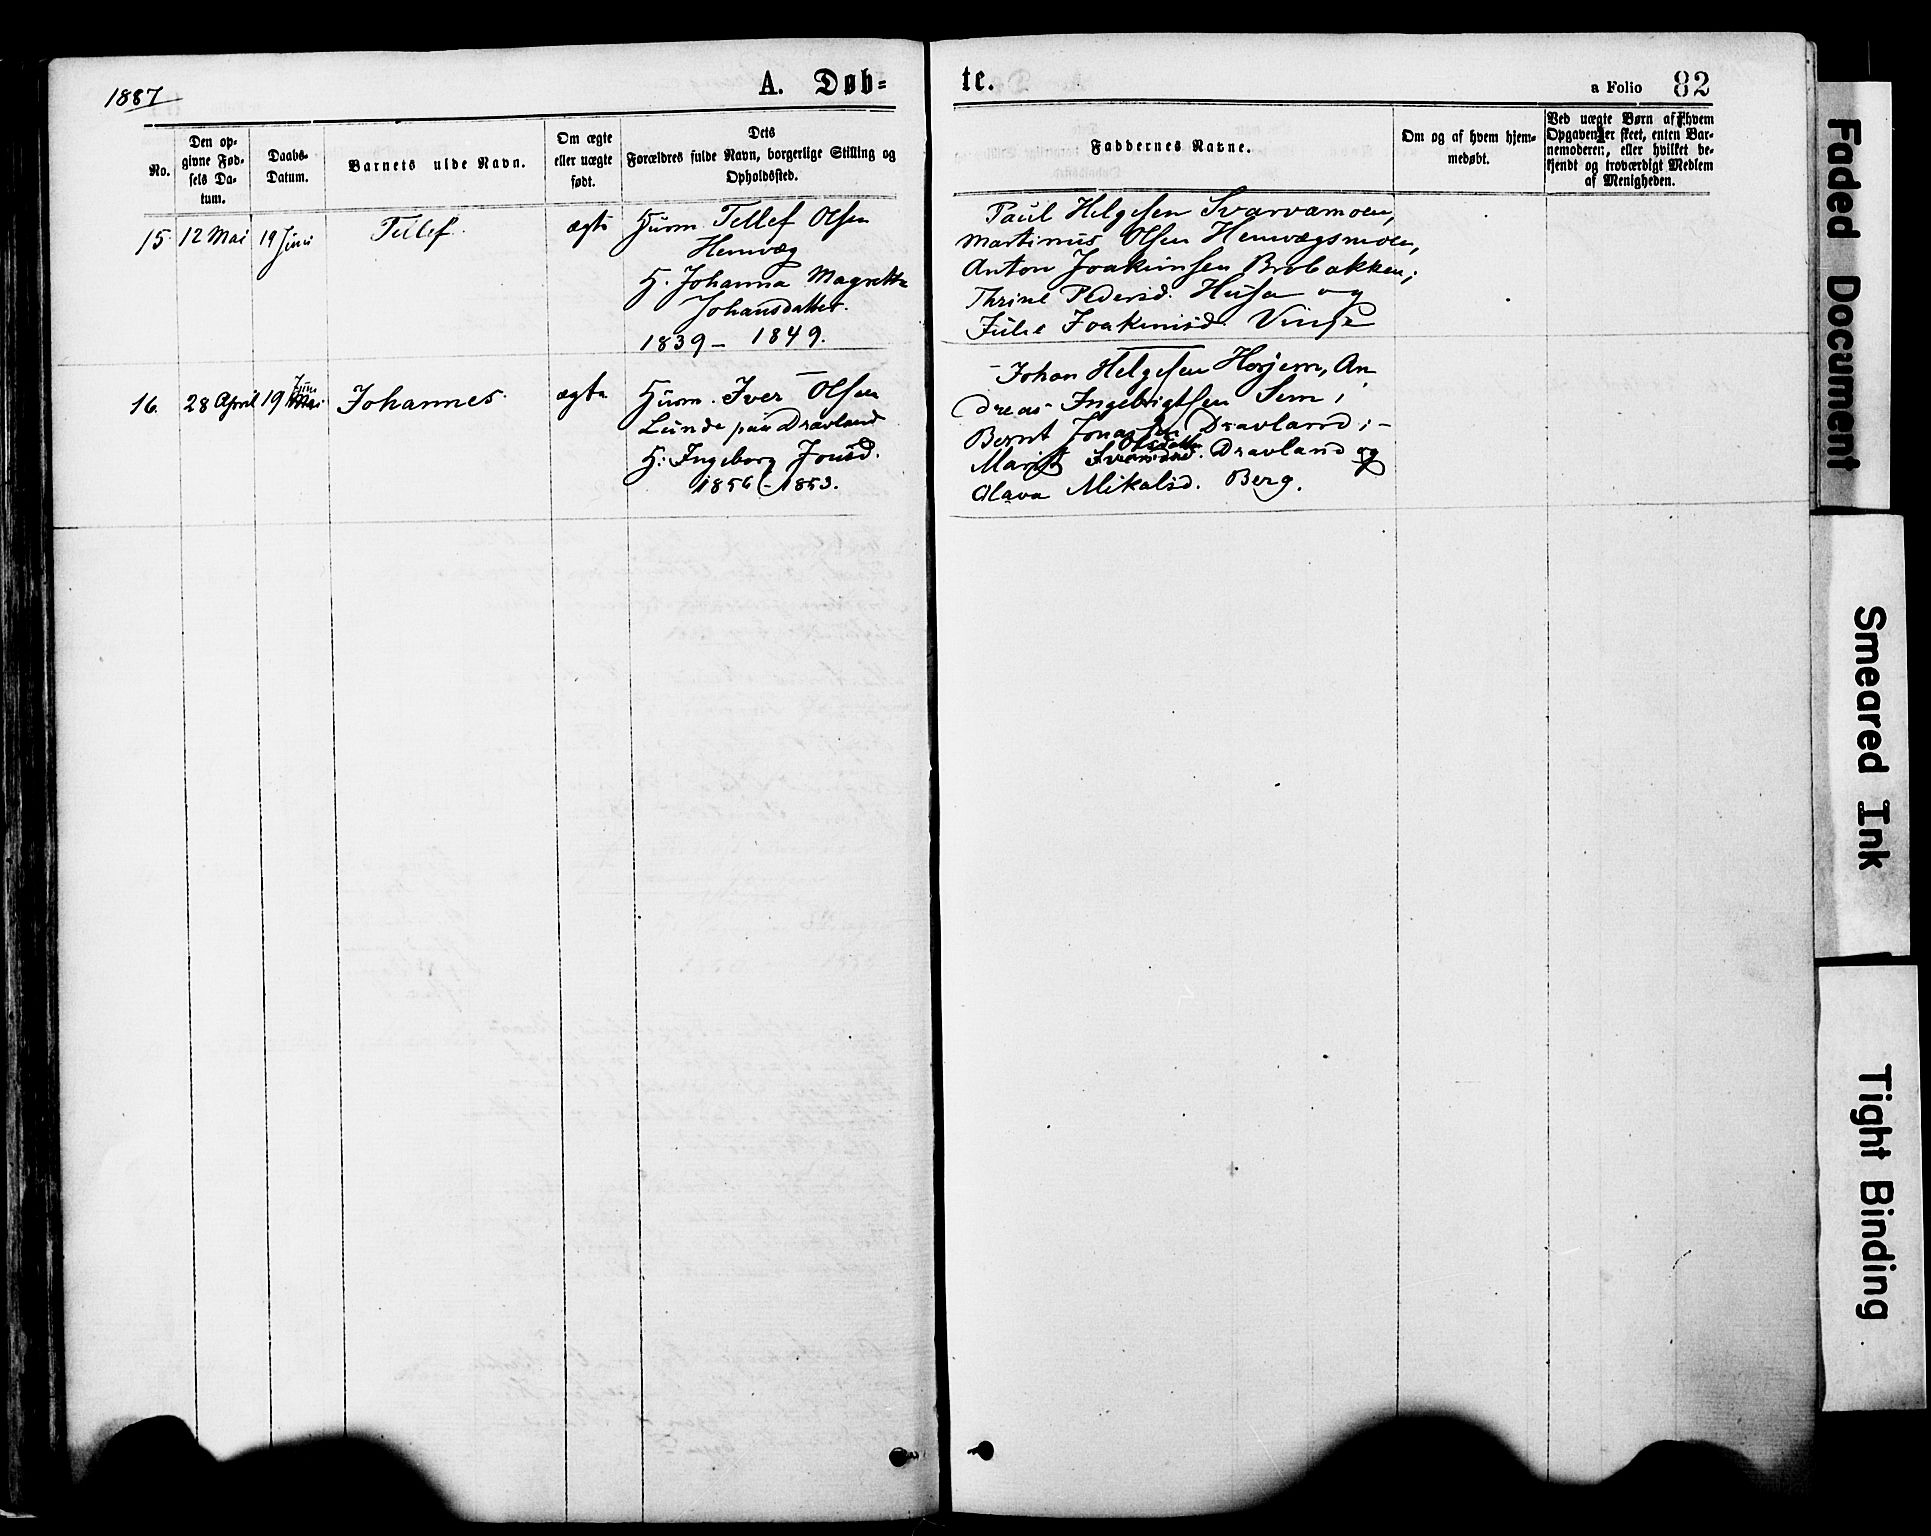 1887
A. Døb=
te.
a Folio 82
No.
Den op-
givne Fød-
sels Da-
tum.
Daabs-
Datum.
Barnets ulde Navn.
Om ægte
eller uægte
født.
Dets
Forældres fulde Navn, borgerlige Stilling og
Opholdssted.
Faddernes Navne.
Om og af hvem hjem-
medøbt.
Ved uægte Børn af hvem
Opgaven er skeet, enten Bar-
nemoderen, eller hvilket be-
kjendt og troværdigt Medlem
af Menigheden.
15. 12 Mai 19 Juni Tellef. ægte
Husm. Tellef Olsen
Hemvæg
H. Johanna Magretta
Johansdatter.
1839 - 1849.
Paul Helgesen Svarvamoen,
Martinus Olsen Hemvægsmoen,
Anton Joakimsen Brobakken;
Thrine Pedersd. Husa og
Julie Joakimsd. Vinge
16. 28 April 19 Juni Mai Johannes. ægte
Husm. Iver Olsen
Lunde paa Dravland
H: Ingeborg Jonsd.
1856 - 1853.
Johan Helgesen Horjem, An
dreas Ingebrigtsen Sem;
Bernt Jonassen Dravland; -
Olsdatter
Marit Iversdad. Dravland og
Olava Mikalsd. Berg.
Faded Document
Smeared Ink
Tight Binding